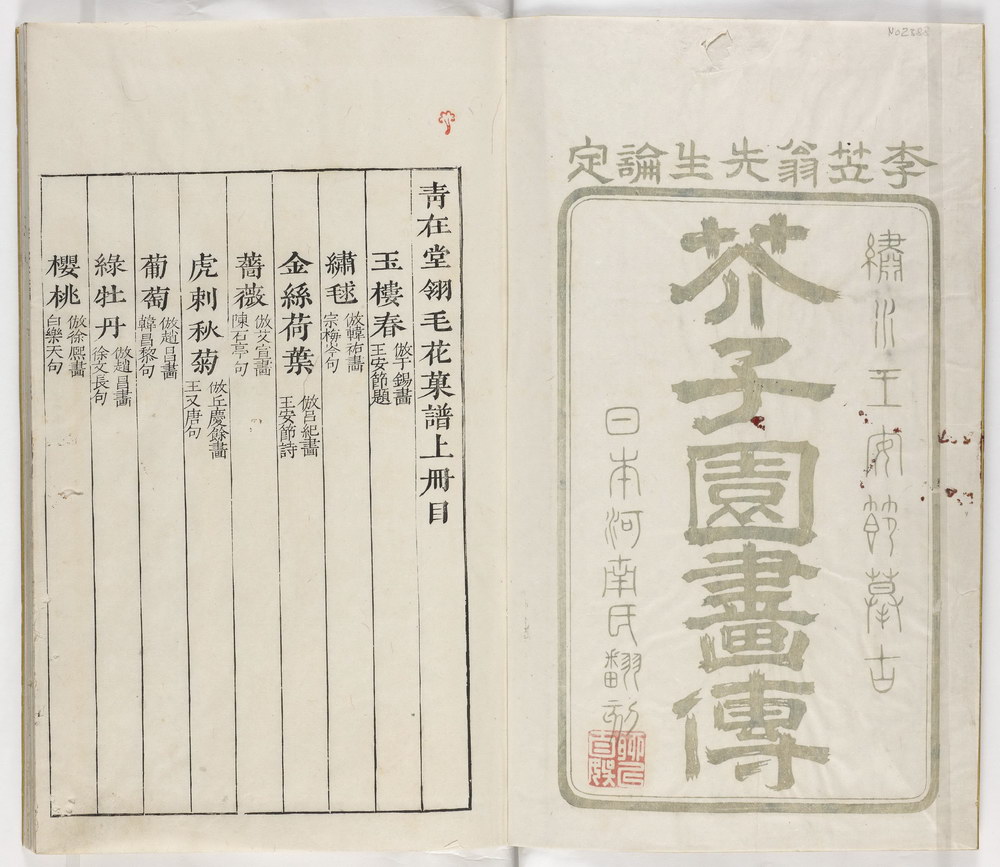 李笠翁先生論定
繡水王安節摹古
芥子園畫傳
日本河南氏翻刻
青在堂翎毛花菓譜上冊目
玉樓春 倣于錫畫 王安節題
繡毬 倣韓祐畫 宗梅岑句
金絲荷葉 倣呂紀畫 王安節詩
薔薇 倣艾宣畫 陳石亭句
虎刺秋菊 倣丘慶餘畫 王又唐句
葡萄 倣趙昌畫 韓昌黎句
綠牡丹 倣趙昌畫 徐文長句
櫻桃 倣徐熙畫 白樂天句